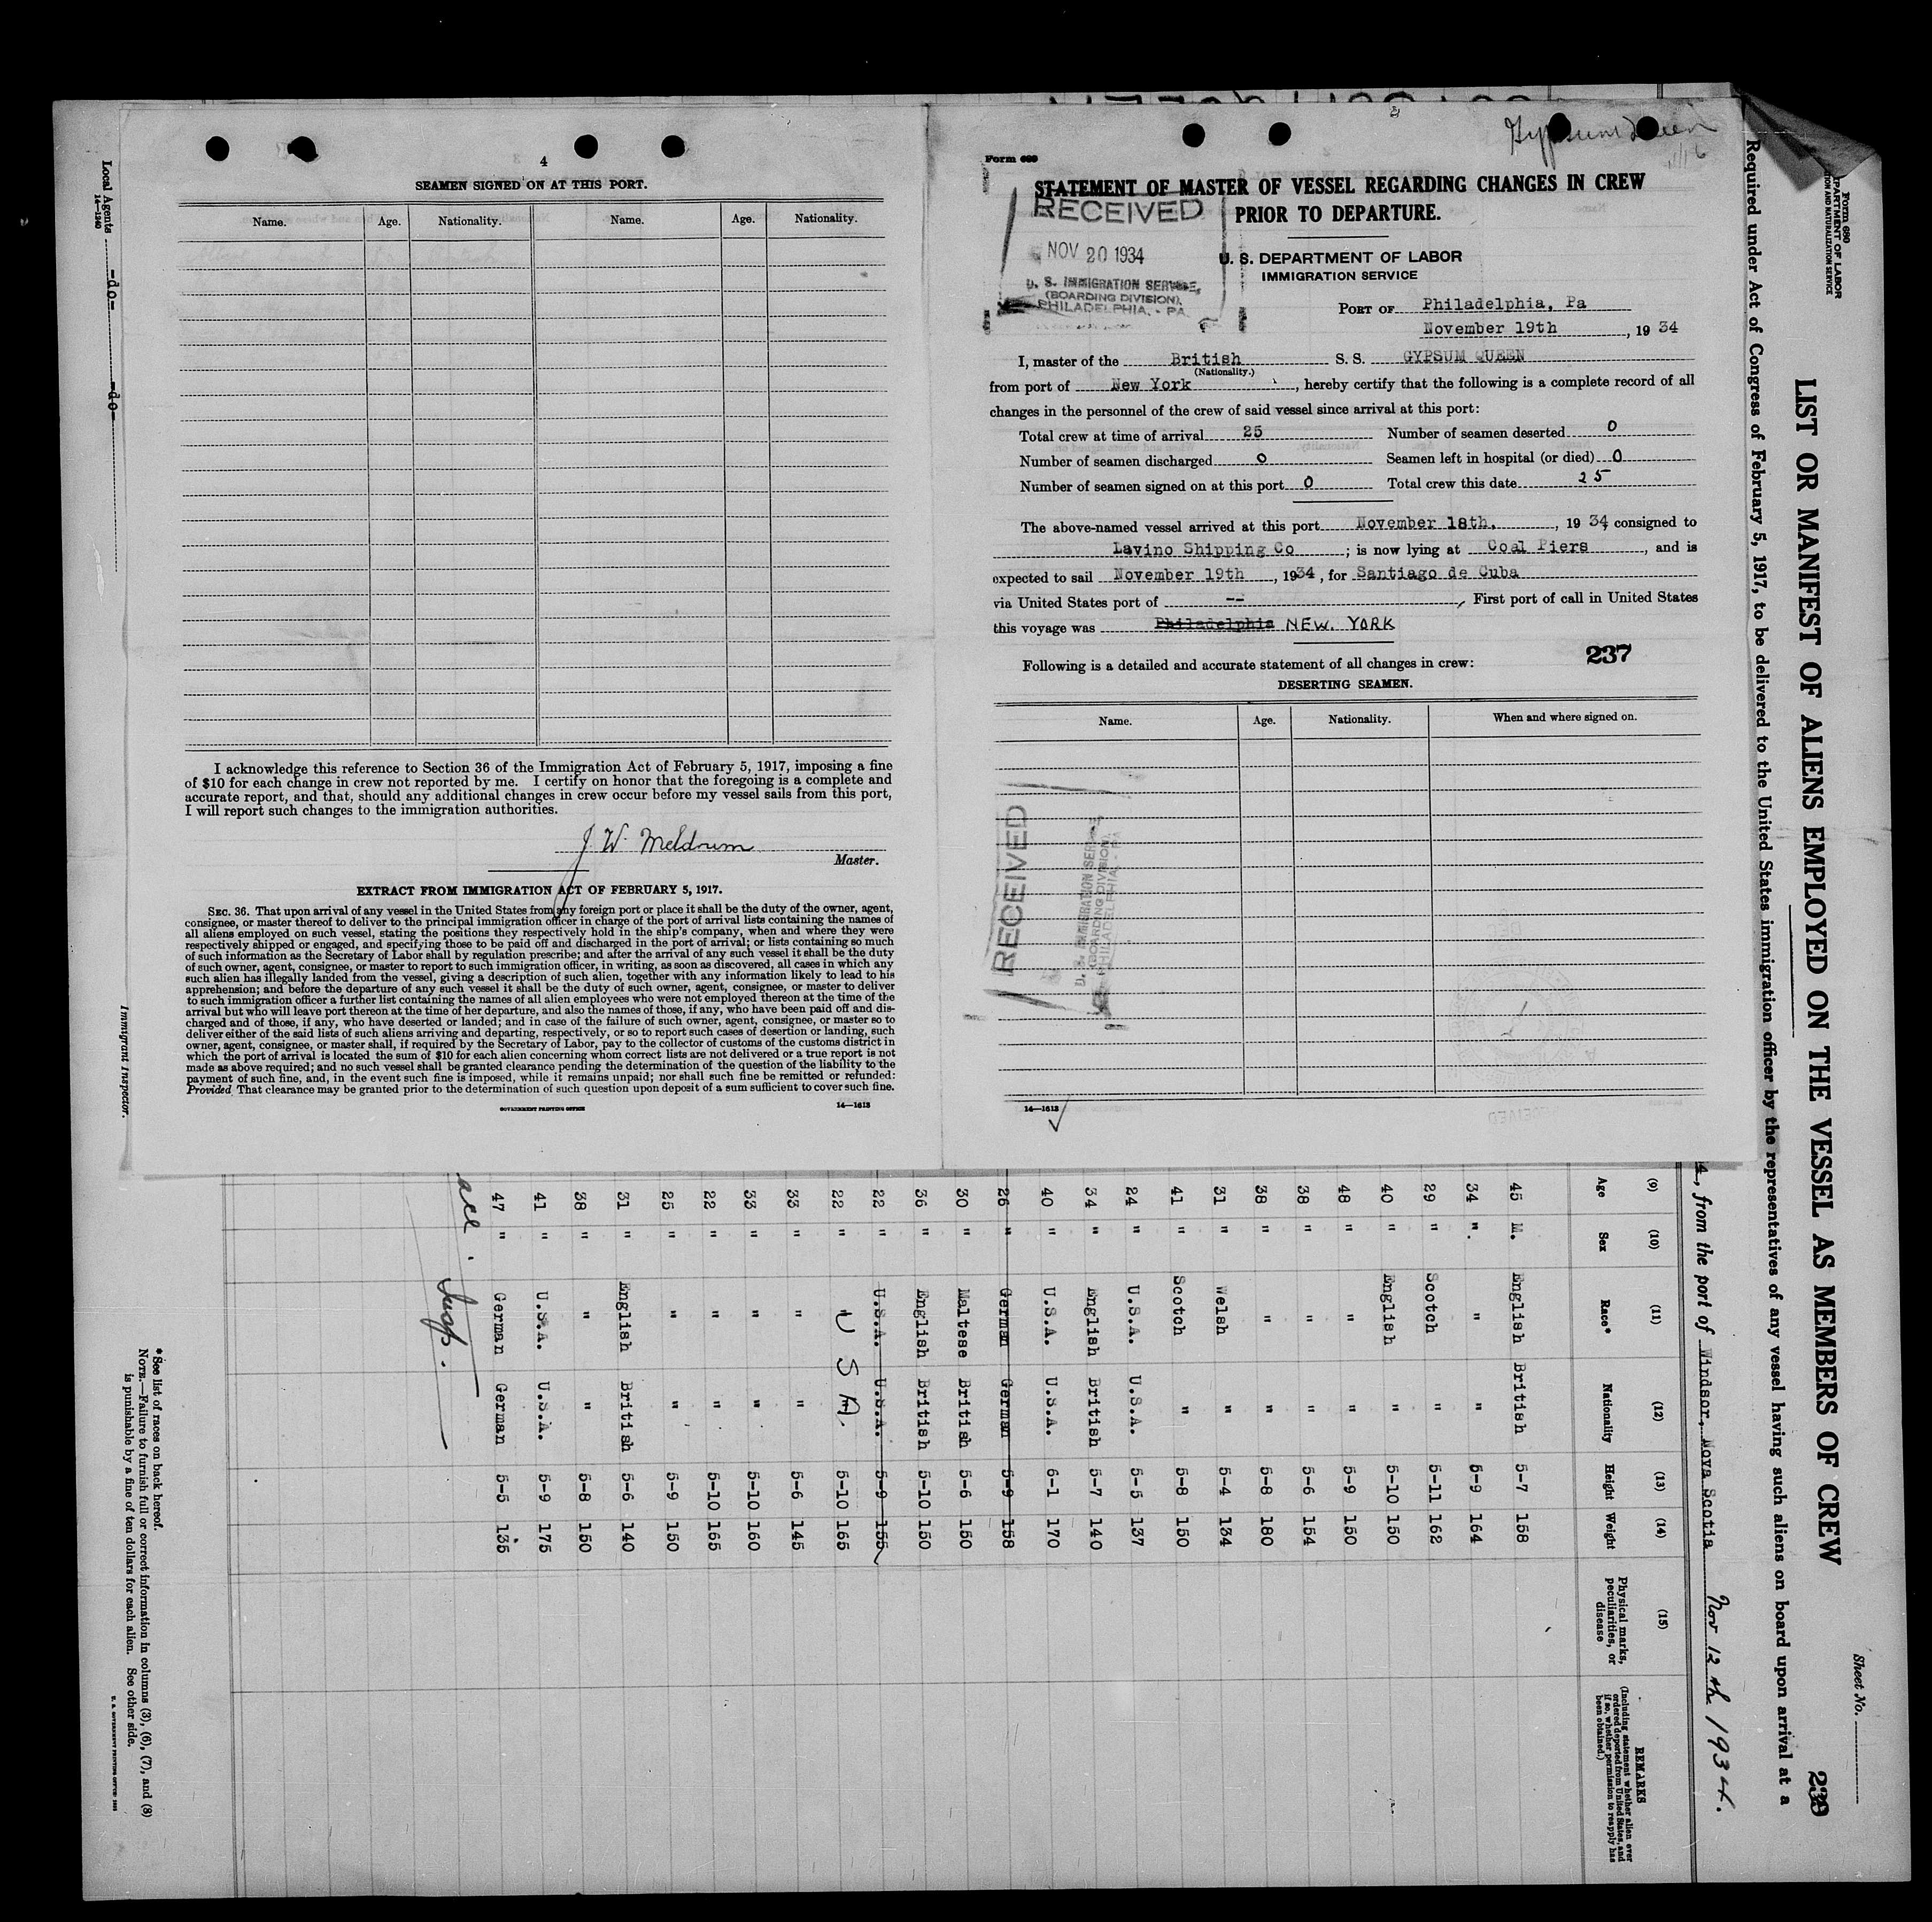 4
SEAMEN SIGNED ON AT THIS PORT.
Name. Age. Nationality. Name. Age. Nationality.
I acknowledge this reference to Section 36 of the Immigration Act of February 5, 1917, imposing a fine
of $10 for each change in crew not reported by me. I certify on honor that the foregoing is a complete and
accurate report, and that, should any additional changes in crew occur before my vessel sails from this port,
I will report such changes to the immigration authorities.
J. W. Meldrum
Master.
EXTRACT FROM IMMIGRATION ACT OF FEBRUARY 5, 1917.
SEC. 36. That upon arrival of any vessel in the United States from any foreign port or place it shall be the duty of the owner, agent,
consignee, or master thereof to deliver to the principal immigration officer in charge of the port of arrival lists containing the names of
all aliens employed on such vessel, stating the positions they respectively hold in the ship's company, when and where they were
respectively shipped or engaged, and specifying those to be paid off and discharged in the port of arrival; or lists containing so much
of such information as the Secretary of Labor shall by regulation prescribe; and after the arrival of any such vessel it shall be the duty
of such owner, agent, consignee, or master to report to such immigration officer, in writing, as soon as discovered, all cases in which any
such alien has illegally landed from the vessel, giving a description of such alien, together with any information likely to lead to his
apprehension; and before the departure of any such vessel it shall be the duty of such owner, agent, consignee, or master to deliver
to such immigration officer a further list containing the names of all alien employees who were not employed thereon at the time of the
arrival but who will leave port thereon at the time of her departure, and also the names of those, if any, who have been paid off and dis-
charged and of those, if any, who have deserted or landed; and in case of the failure of such owner, agent, consignee, or master so to
deliver either of the said lists of such aliens arriving and departing, respectively, or so to report such cases of desertion or landing, such
owner, agent, consignee, or master shall, if required by the Secretary of Labor, pay to the collector of customs of the customs district in
which the port of arrival is located the sum of $10 for each alien concerning whom correct lists are not delivered or a true report is not
made as above required; and no such vessel shall be granted clearance pending the determination of the question of the liability to the
payment of such fine, and, in the event such fine is imposed, while it remains unpaid; nor shall such fine be remitted or refunded:
Provided That clearance may be granted prior to the determination of such question upon deposit of a sum sufficient to cover such fine.
GOVERNMENT PRINTING OFFICE 14—1613
Gypsum Queen
11/16
Form 689
STATEMENT OF MASTER OF VESSEL REGARDING CHANGES IN CREW
PRIOR TO DEPARTURE.
RECEIVED
NOV 20 1934
U. S. IMMIGRATION SERVICE,
(BOARDING DIVISION)
PHILADELPHIA, - PA.
U. S. DEPARTMENT OF LABOR
IMMIGRATION SERVICE
PORT OF Philadelphia, Pa
November 19th, 19 34
I, master of the British S. S. GYPSUM QUEEN
(Nationality.)
from port of New York, hereby certify that the following is a complete record of all
changes in the personnel of the crew of said vessel since arrival at this port:
Total crew at time of arrival 25 Number of seamen deserted 0
Number of seamen discharged 0 Seamen left in hospital (or died) 0
Number of seamen signed on at this port 0 Total crew this date 25
The above-named vessel arrived at this port November 18th, 19 34, consigned to
Lavino Shipping Co ; is now lying at Coal Piers, and is
expected to sail November 19th, 1934, for Santiago de Cuba
via United States port of --, First port of call in United States
this voyage was Philadelphia NEW. YORK
237
Following is a detailed and accurate statement of all changes in crew:
DESERTING SEAMEN.
Name. Age. Nationality. When and where signed on.
RECEIVED
U. S. IMMIGRATION SERVICE
(BOARDING DIVISION)
PHILADELPHIA - PA
14—1613
Form 680
DEPARTMENT OF LABOR
IMMIGRATION AND NATURALIZATION SERVICE
Sheet No.
LIST OR MANIFEST OF ALIENS EMPLOYED ON THE VESSEL AS MEMBERS OF CREW
239
Required under Act of Congress of February 5, 1917, to be delivered to the United States immigration officer by the representatives of any vessel having such aliens on board upon arrival at a
4, from the port of Windsor, Nova Scotia Nov 12th 1934.
(9) (10) (11) (12) (13) (14) (15)
Age Sex Race* Nationality Height Weight Physical marks, peculiarities, or disease
REMARKS
(Including statement whether alien ever ordered deported from United States, and if so, whether permission to reapply has been obtained.)
45 M. English British 5-7 158
34 " " " 5-9 164
29 " Scotch " 5-11 162
40 " English " 5-10 150
48 " " " 5-9 150
38 " " " 5-6 154
38 " " " 5-8 180
31 " Welsh " 5-4 134
41 " Scotch " 5-8 150
24 " U.S.A. U.S.A. 5-5 137
34 " English British 5-7 140
40 " U.S.A. U.S.A. 6-1 170
26 " German German 5-9 158
30 " Maltese British 5-6 150
36 " English British 5-10 150
22 " U.S.A. U.S.A. 5-9 155
22 " " U S A. 5-10 165
33 " " " 5-6 145
33 " " " 5-10 160
22 " " " 5-10 165
25 " " " 5-9 150
31 " English British 5-6 140
38 " " " 5-8 150
41 " U.S.A. U.S.A. 5-9 175
47 " German German 5-5 135
Insp.
*See list of races on back hereof.
NOTE.—Failure to furnish full or correct information in columns (3), (6), (7), and (8)
is punishable by a fine of ten dollars for each alien. See other side.
U. S. GOVERNMENT PRINTING OFFICE
Local Agents -do- -do-
14—1240
Immigrant Inspector.